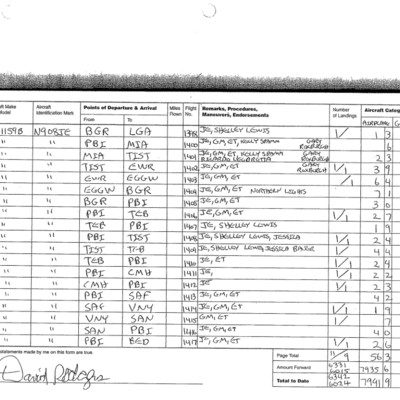 Aircraft Identification Mark
Points of Departure & Arrival
From To
Miles Flown
Flight No.
Remarks, Procedures, Maneuvers, Endorsements
Number of Landings
Aircraft
1159B N908JE BGR LGA 1399 JE, SHELLEY LEWIS 1/ 1 3
" " PBI MIA 1400 JE, GM, ET, KELLY SPAMM GARY ROXBURGH 6
" " MIA TIST 1401 JE, GM, ET, KELLY SPAMM 2 3
" " TIST EWR 1402 JE, GM, ET GARY ROXBURGH 1/1 3 9
" " EWR EGGW 1403 JE, GM, ET /1 6 4
" " EGGW BGR 1404 JE, GM, ET NORTHERN LIGHTS 7 1
" " BGR PBI 1405 JE, GM, ET 3 0
" " PBI TEB 1406 JE, GM, ET 1/1 2 7
" " TEB PBI 1407 JE, SHELLEY LEWIS 1 9
" " PBI TIST 1408 JE, SHELLEY LEWIS, JESSICA 1/1 2 4
" " TIST TEB 1409 JE, SHELLEY LEWIS, JESSICA 4 4
" " TEB PBI 1410 JE, ET 1/1 2 4
" " PBI CMH 1411 JE, 1/1 2 2
" " CMH PBI 1412 JE 1/1 2 3
" " PBI SAF 1413 JE, GM, ET 4 2
" " SAF VNY 1414 JE, GM, ET 1/1 1 9
" " VNY SAN 1415 GM, ET 7
" " SAN PBI 1416 JE, GM, ET 4 0
" " PBI BED 1417 JE, GM, ET 1/1 2 6
statements made by me on this form are true.
Page Total 11/9 56 3
Amount Forward 6331 6015 7935 6
Total to Date 6342 6024 7991 9
David Rodgers